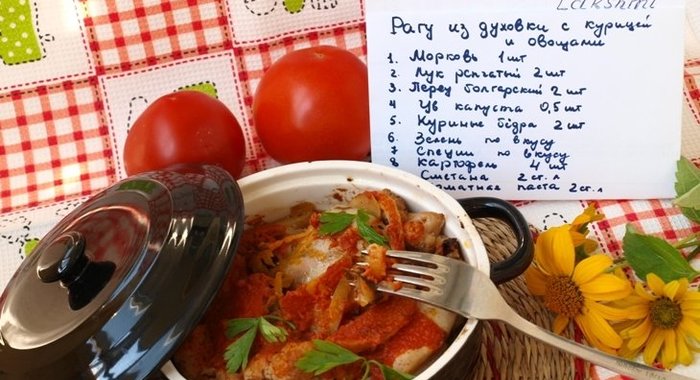 Lakshmi
Рагу из духовки с курицей
и овощами
1. Морковь 1 шт
2. Лук репчатый 2 шт
3. Перец болгарский 2 шт
4 Цв капуста 0,5 шт
5. Куриные бёдра 2 шт
6 Зелень по вкусу
7 Специи по вкусу
8 Картофель 4 шт
Сметана 2 ст. л
оматная паста 2 ст. л